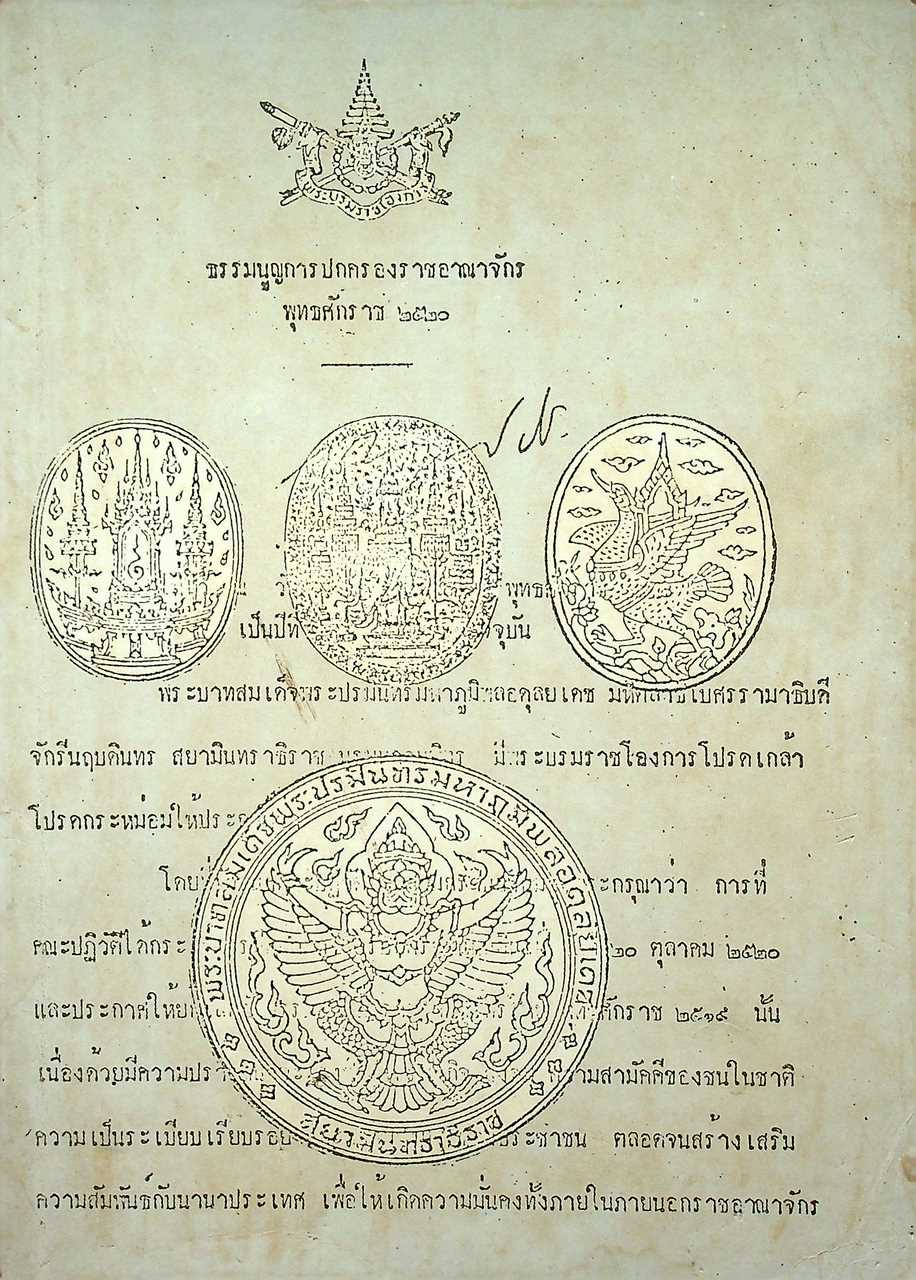 พระบรมราชโองการ
ธรรมนูญการปกครองราชอาณาจักร
พุทธศักราช ๒๕๒๐
ป.ป.
พุทธ
เป็นปีที่ จุบัน
พระบาทสมเด็จพระปรมินทรมหาภูมิพลอดุลยเดช มหิตลาธิเบศรรามาธิบดี
จักรีนฤบดินทร สยามินทราธิราช บรมนาถบพิตร มีพระบรมราชโองการโปรดเกล้า
โปรดกระหม่อมให้ประก
พระบาทสมเด็จพระปรมินทรมหาภูมิพลอดุลยเดช
โดยที่ ะกรุณาว่า การที่
คณะปฏิวัติได้กระ ๒๐ ตุลาคม ๒๕๒๐
และประกาศให้ย ศักราช ๒๕๑๙ นั้น
เนื่องด้วยมีความปรา วามสามัคคีของชนในชาติ
ความเป็นระเบียบเรียบรอย ประชาชน ตลอดจนสร้างเสริม
สยามินทราธิราช
ความสัมพันธ์กับนานาประเทศ เพื่อให้เกิดความมั่นคงทั้งภายในภายนอกราชอาณาจักร